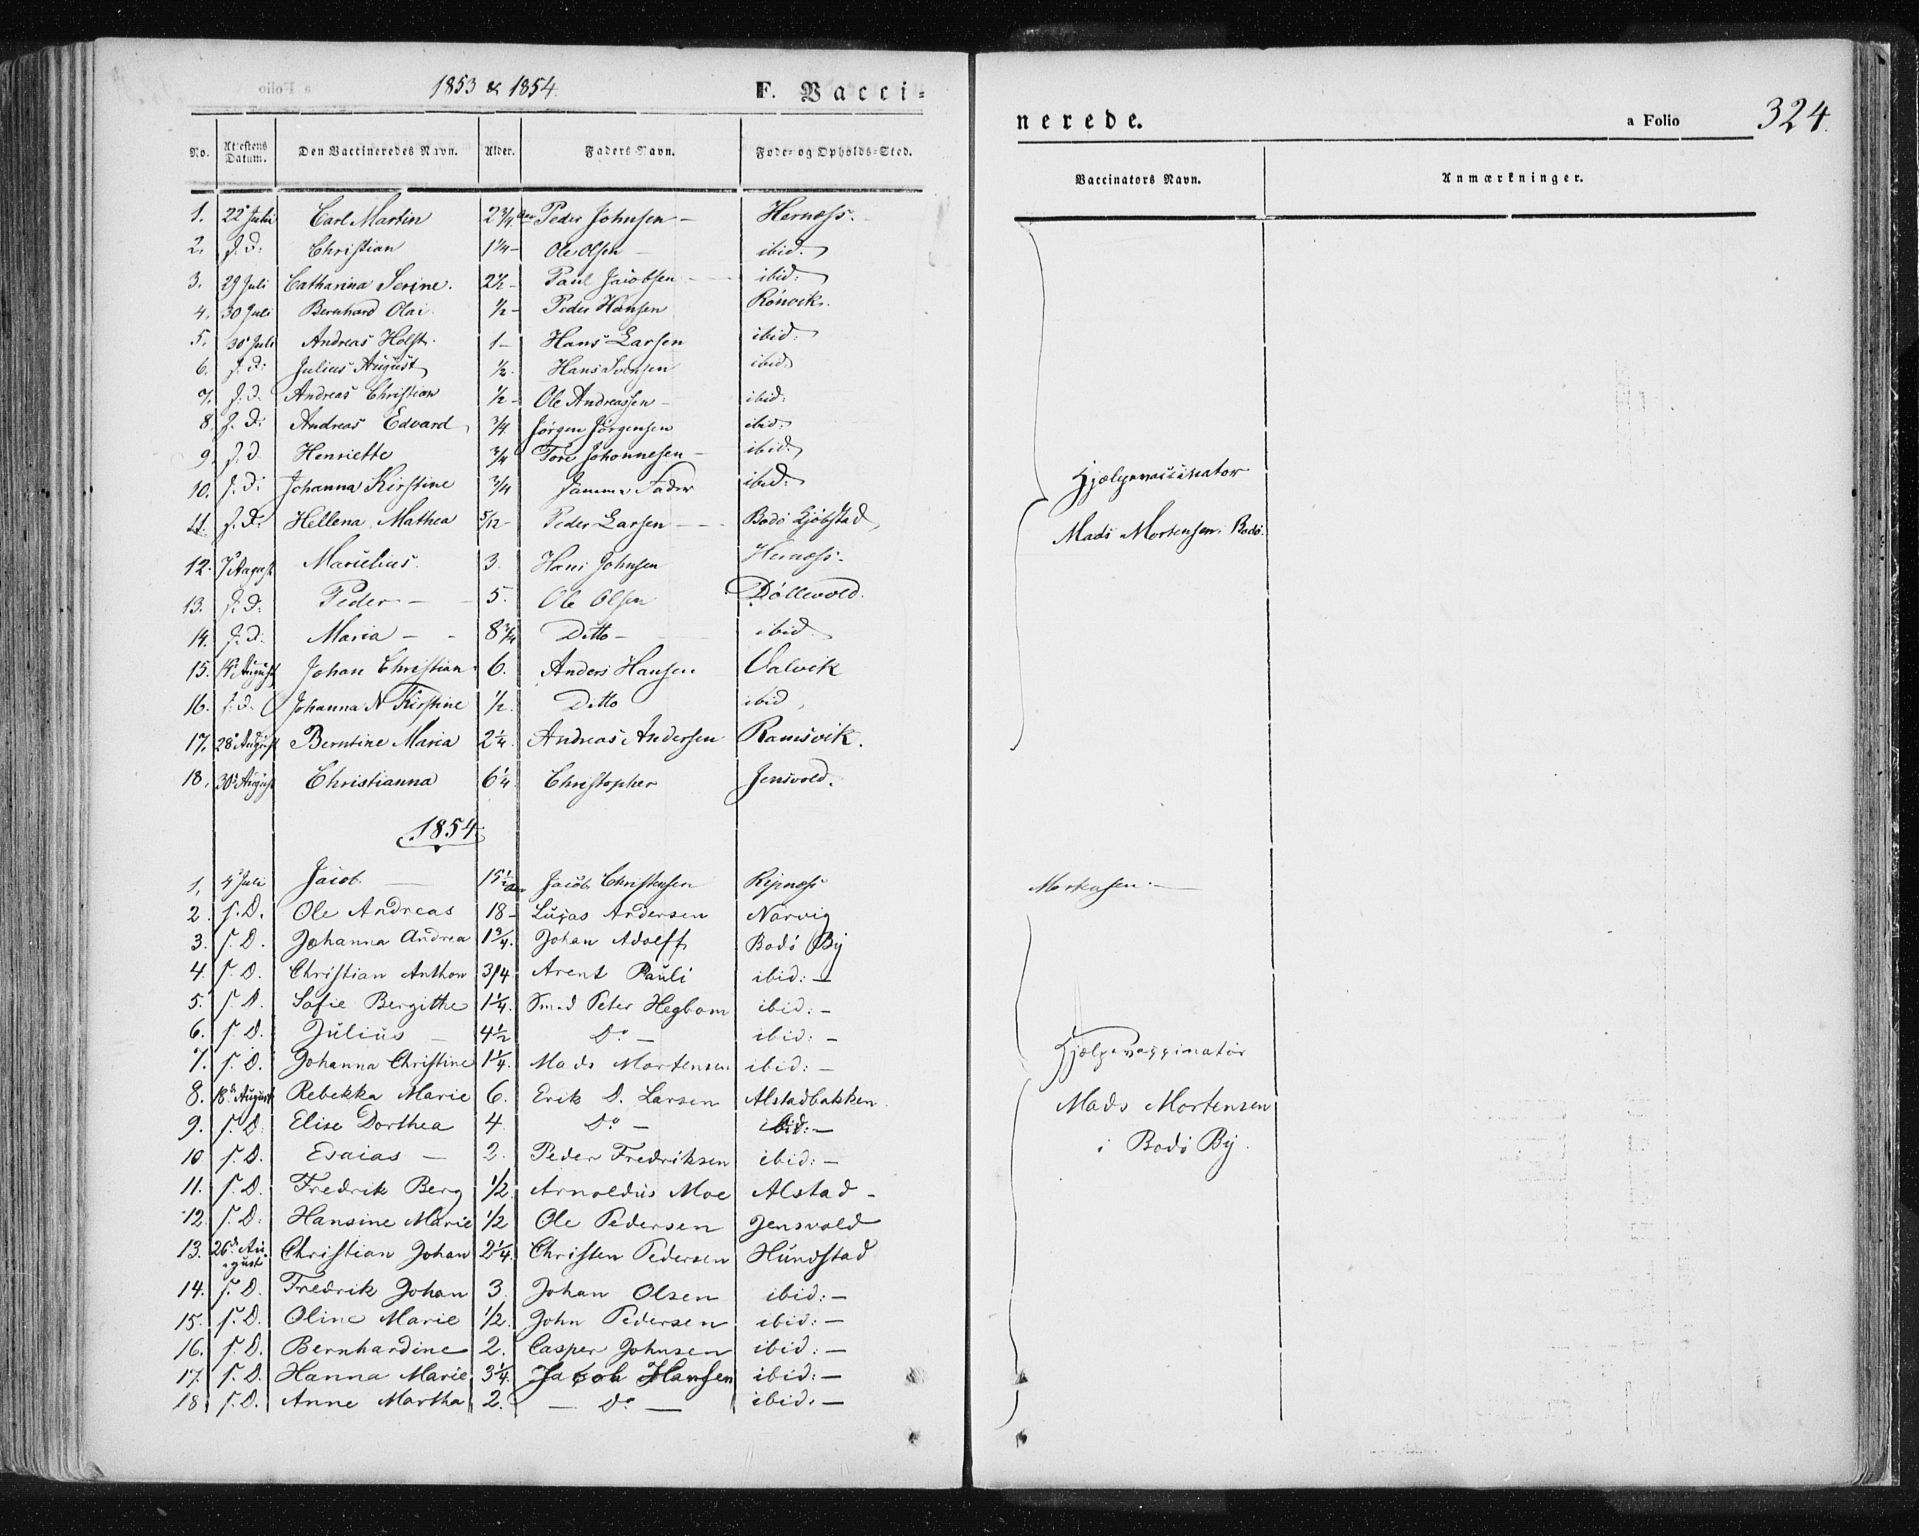 1853 & 1854.
F. Vacci-
nerede.
a Folio 324.
No. Attestens Datum. Den Vaccineredes Navn. Alder. Faders Navn. Føde- og Opholds-Sted. Vaccinators Navn. Anmærkninger.
1. 22 Juli Carl Martin 2 3/4 Aar Peder Johnsen - Hernæss.
2. s. d. Christian 1 1/4 - Ole Olsen - ibid.
3. 29 Juli Catharina Serine. 2 1/2 - Paul Jacobsen - ibid:
4. 30 Juli Bernhard Olai. 1/2 - Peder Hansen Rönvik.
5. 30 Juli Andreas Holst. 1 - Hans Larsen ibid:
6. s. d: Julius August 1/2. Hans Svensen ibid
7. s. d. Andreas Christian 1/2 - Ole Andreassen - ibid:
8. s. d: Andreas Edvard 3/4 Jørgen Jørgensen ibid.
9. s. d. Henriette 3/4 Tore Johannesen - ibid.
10. s. d: Johanna Kirstine 3/4 Samme Fader ibid.
11. s. d: Hellena Mathea 5/12 - Peder Larsen - Bodö Kjöbstad
12. 7 August Marielius. 3. Hans Johnsen Hernæss.
13. s. d. Peder - 5. Ole Olsen Döllevold.
14. s. d: Maria - - 8 3/4 Ditto - ibid.
15. 14 August Johan Christian 6. Anders Hansen Valvik
16. s. d. Johanna N Kirstine 1/2. Ditto ibid
17. 28 August Berntine Maria 2 1/4. Andreas Andersen Ramsvik.
18. 30 August Christianna 6 1/4 Christopher Jensvold.
Hjælpevaccinator
Mads Mortensen. Bodö.
1854.
1, 4 Juli Jacob. - 15 1/2 Aar Jacob Christensen Ripnæss
2. s. D. Ole Andreas 18 - Lucas Andersen Narvig
3. s. D. Johanna Andrea 1 3/4. Johan Adolff Bodö By
4. s. D. Christian Anthon 3/4 Arent Pauli ibid: -
5. s. D. Sofie Bergithe 1 1/4. Smed Peter Hegbom ibid: -
6. s. D. Julius - 4 1/2 Do - ibid: -
7. s. D. Johanna Christine 1 1/4. Mads Mortensen ibid: -
8. 18 August Rebekka Marie 6. Erik D. Larsen Alstadbakken.
9. s. D. Elise Dorthea 4. Do - ibid: -
10 s. D. Esaias - 2. Peder Fredriksen ibid: -
11. s. D. Fredrik Berg 1/2 Arnoldus Moe Alstad -
12. s. D. Hansine Marie 1/2 Ole Pedersen Jensvold
13. 26 August Christian Johan 2 1/4. Christen Pedersen Hundstad
14. s. D. Fredrik Johan 3. Johan Olsen ibid: -
15. s. D. Oline Marie 1/2. John Pedersen ibid: -
16. s. D. Bernhardine 2. Casper Johnsen ibid: -
17. s. D. Hanna Marie 3 1/4. Jacob Hansen ibid: -
18 s. D. Anne Martha 2. - Do - ibid. -
Hjælpevaccinator
Mads Mortensen
i Bodö By.